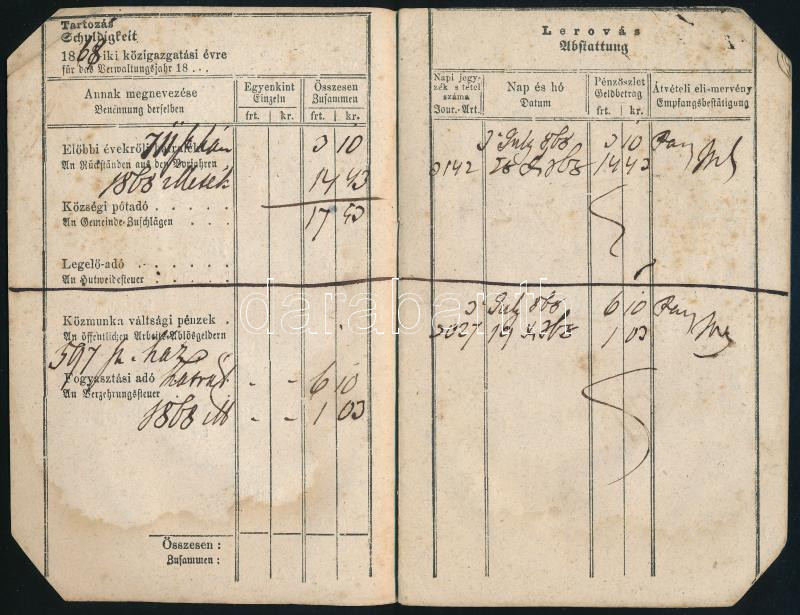 Tartozás
Schuldigkeit
1868-iki közigazgatási évre
für das Verwaltungsjahr 18 . . .
Annak megnevezése
Benennung derselben
Egyenkint
Einzeln
Összesen
Zusammen
frt. kr. frt. kr.
Előbbi évekről
3 10
An Rückständen aus den Vorjahren
1868 14 43
Községi pótadó . . . . .
17 53
An Gemeinde-Zuschlägen . . . .
Legelő-adó . . . . . .
An Hutweidesteuer . . . . .
Közmunka váltsági pénzek .
An öffentlichen Arbeits-Ablösgeldern
597 p. ház
Fogyasztási adó - - 6 10
An Verzehrungssteuer
1868 - - 1 03
Összesen :
Zusammen :
Lerovás
Abstattung
Napi jegyzék s tétel száma
Jour.-Art.
Nap és hó
Datum
Pénzöszlet
Geldbetrag
frt. kr.
Átvételi eli-mervény
Empfangsbestätigung
3 July 868 3 10
3142 868 14 43
3 July 868 6 10
3027 19 1 03
darabanth